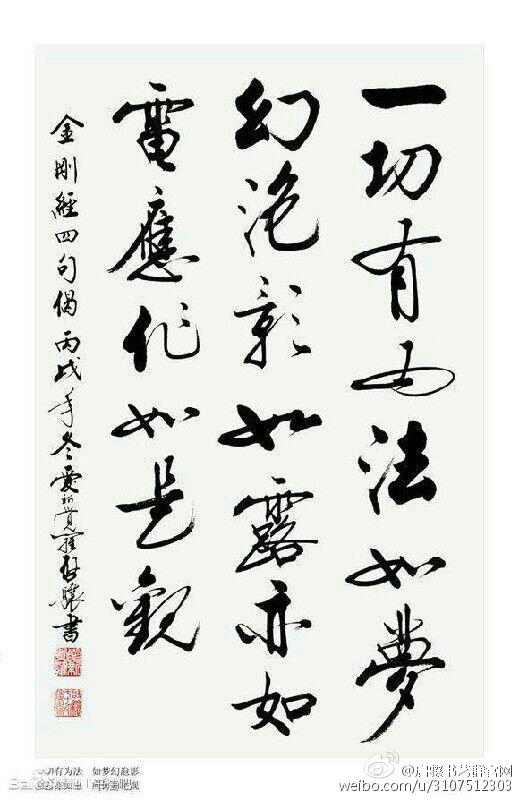 一切有为法如夢
幻泡影如露亦如
電應作如是觀
金剛經四句偈 丙戌年冬愛新覺羅啟驤書
切有为法 如梦幻泡影
weibo.com/u/3107512303